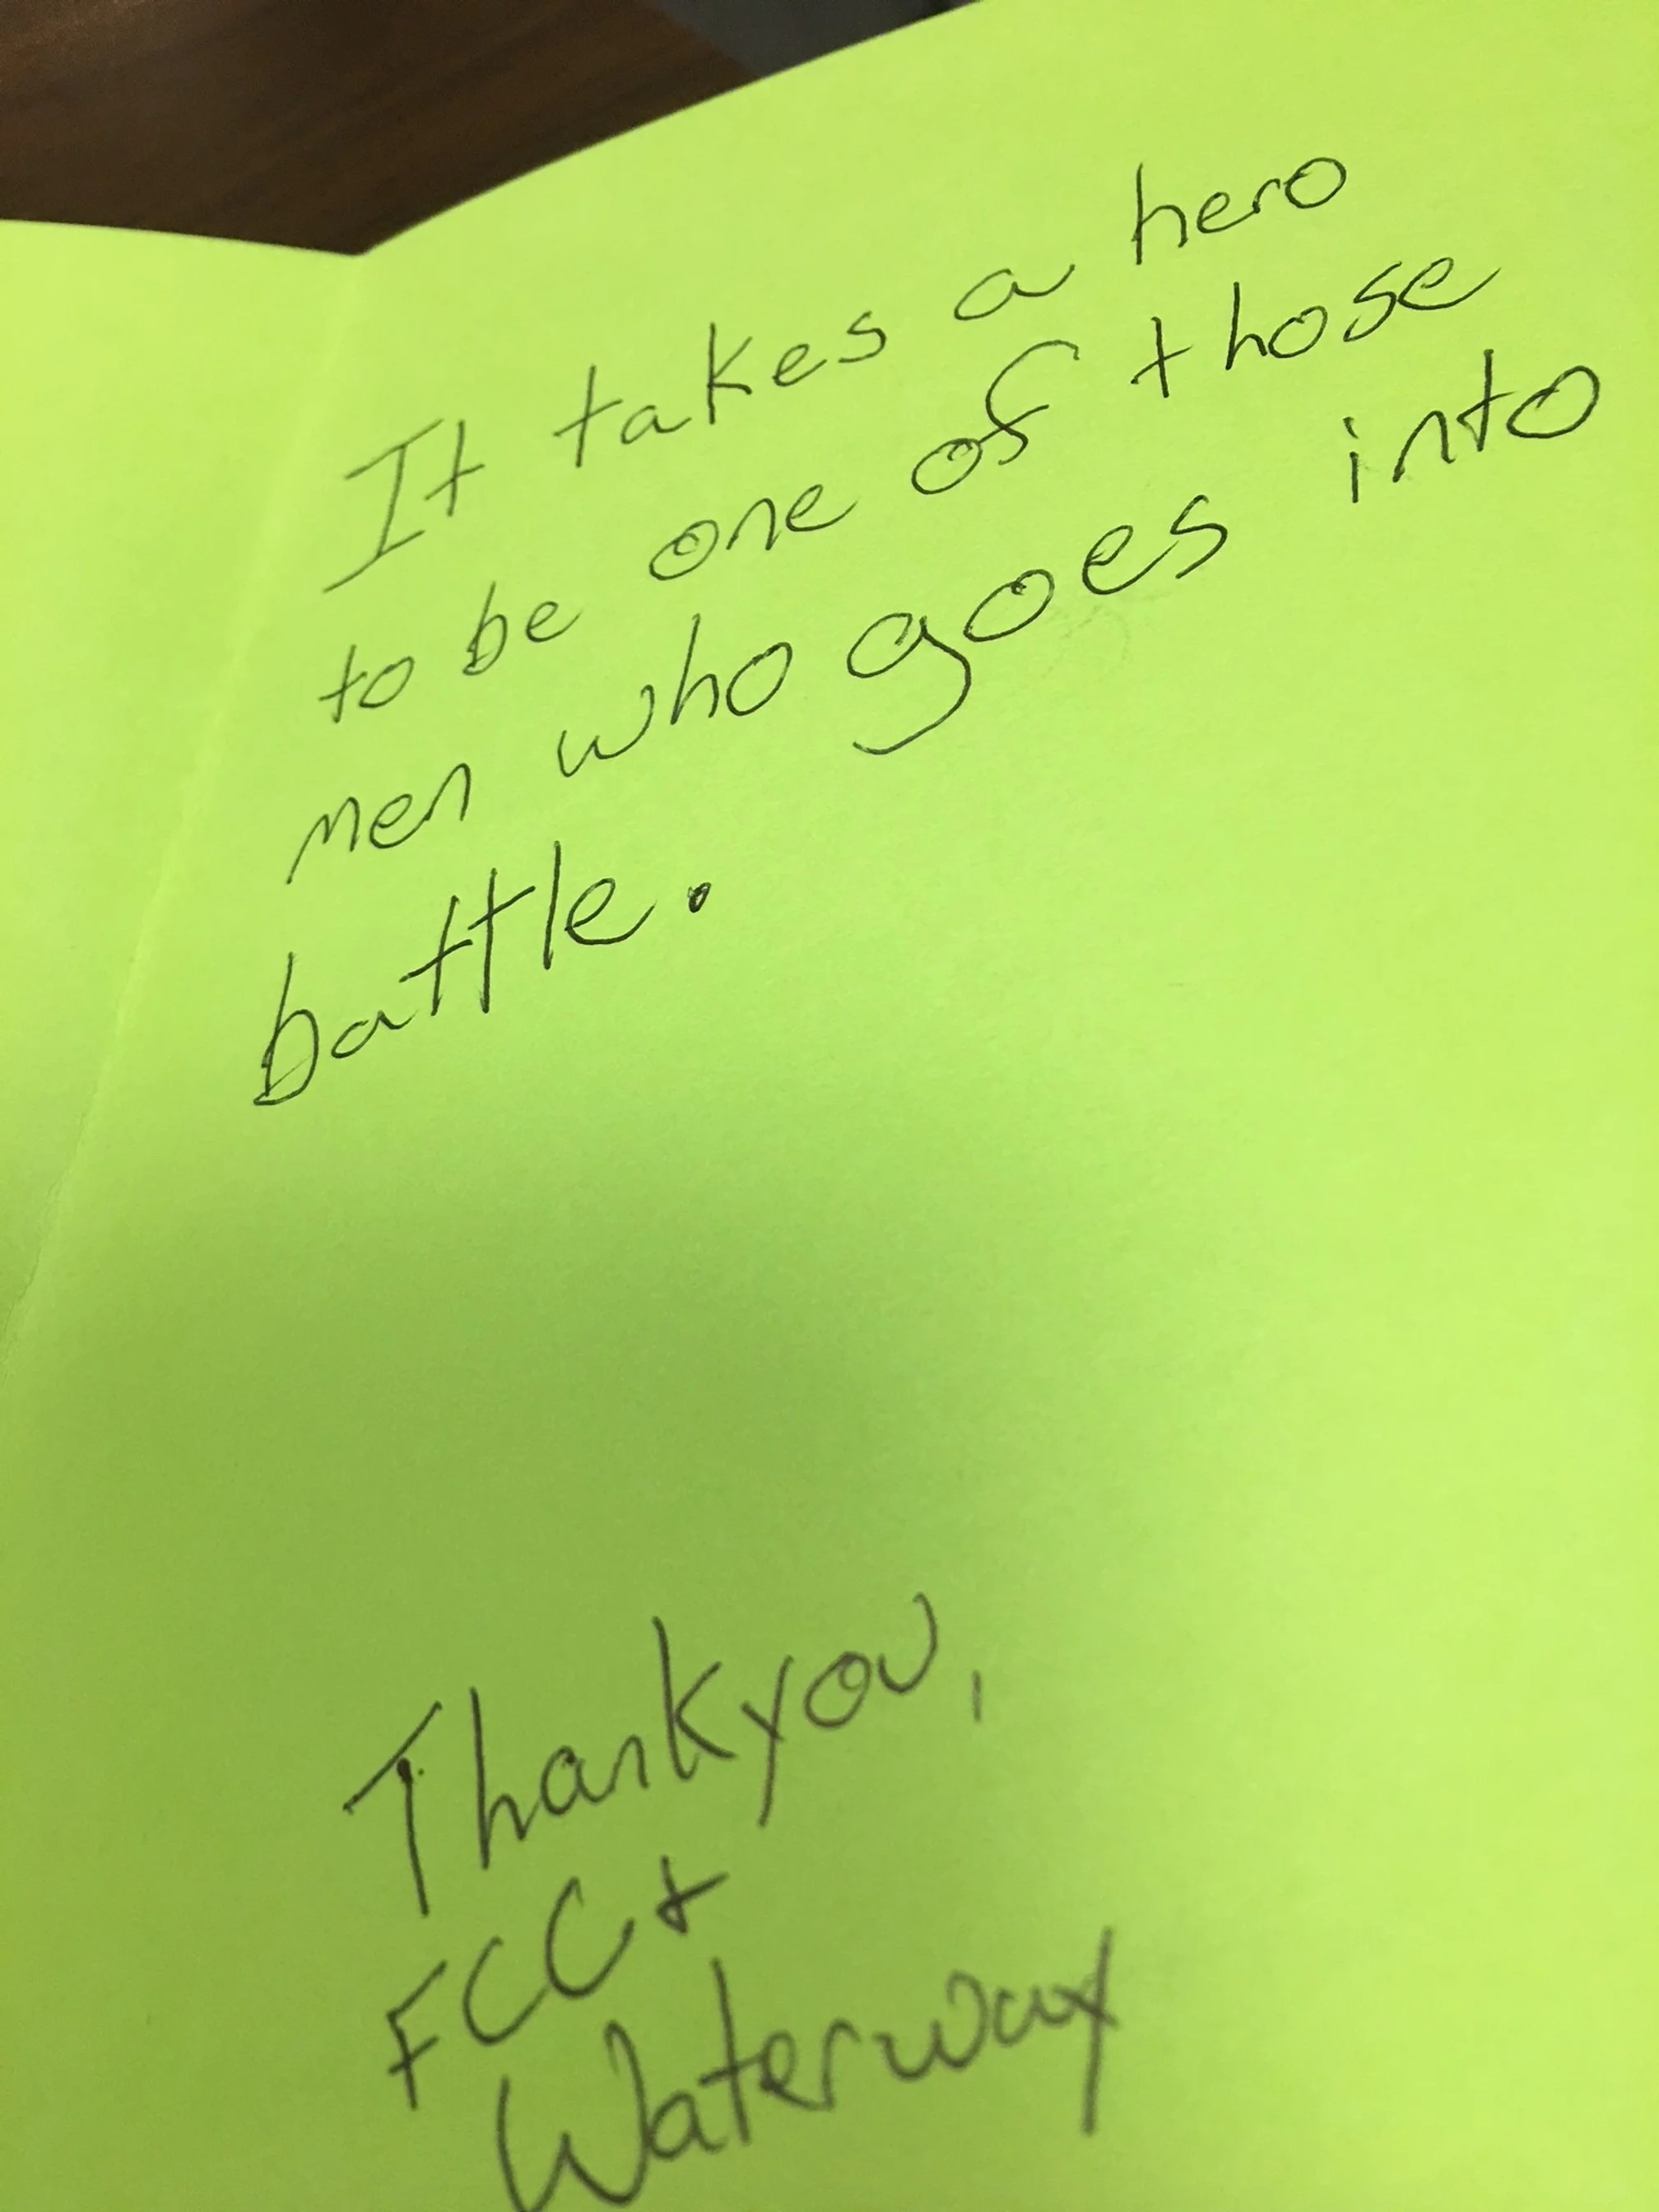 It takes a hero
to be one of those
men who goes into
battle.
Thankyou,
FCC +
Waterway